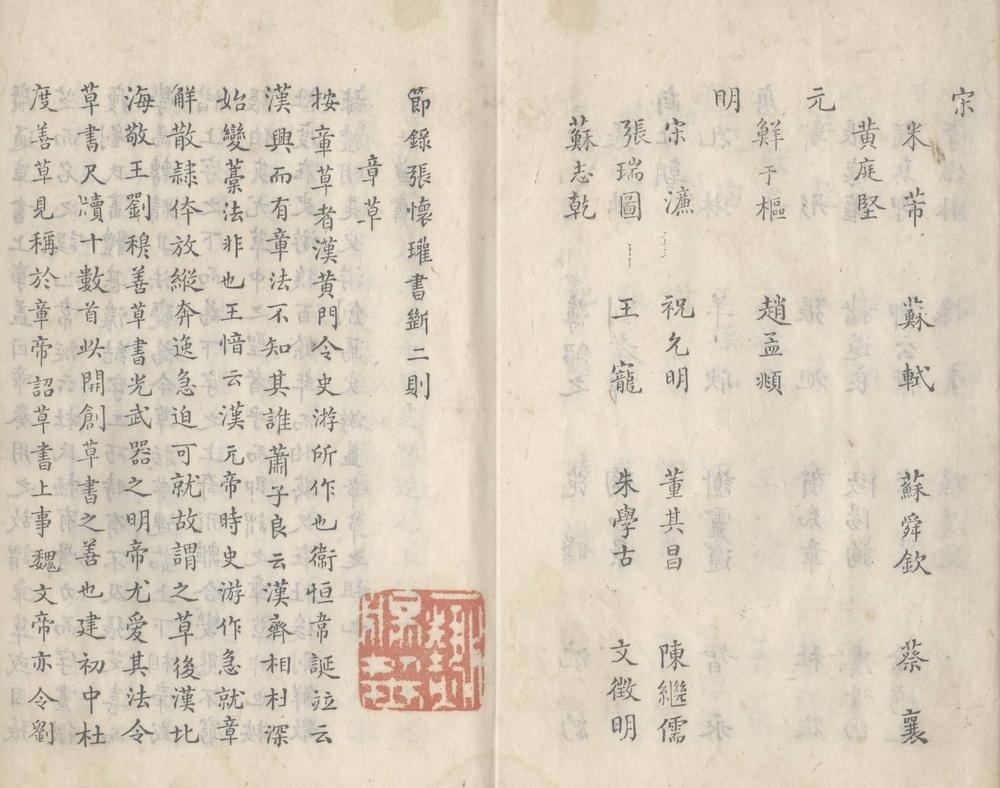 宋
米芾 蘇軾 蘇舜欽 蔡襄
黃庭堅
元
鮮于樞 趙孟頫
明
宋濂 祝允明 董其昌 陳繼儒
張瑞圖 王寵 朱學古 文徵明
蘇志乾
節錄張懷瓘書斷二則
章草
按章草者漢黃門令史游所作也衞恒韋誕竝云
漢興而有章法不知其誰蕭子良云漢齊相杜深
始變藁法非也王愔云漢元帝時史游作急就章
觧散隷体放縱奔逸急迫可就故謂之草後漢北
海敬王劉穆善草書光武器之明帝尤愛其法令
草書尺牘十數首此開創草書之善也建初中杜
度善草見稱於章帝詔草書上事魏文帝亦令劉